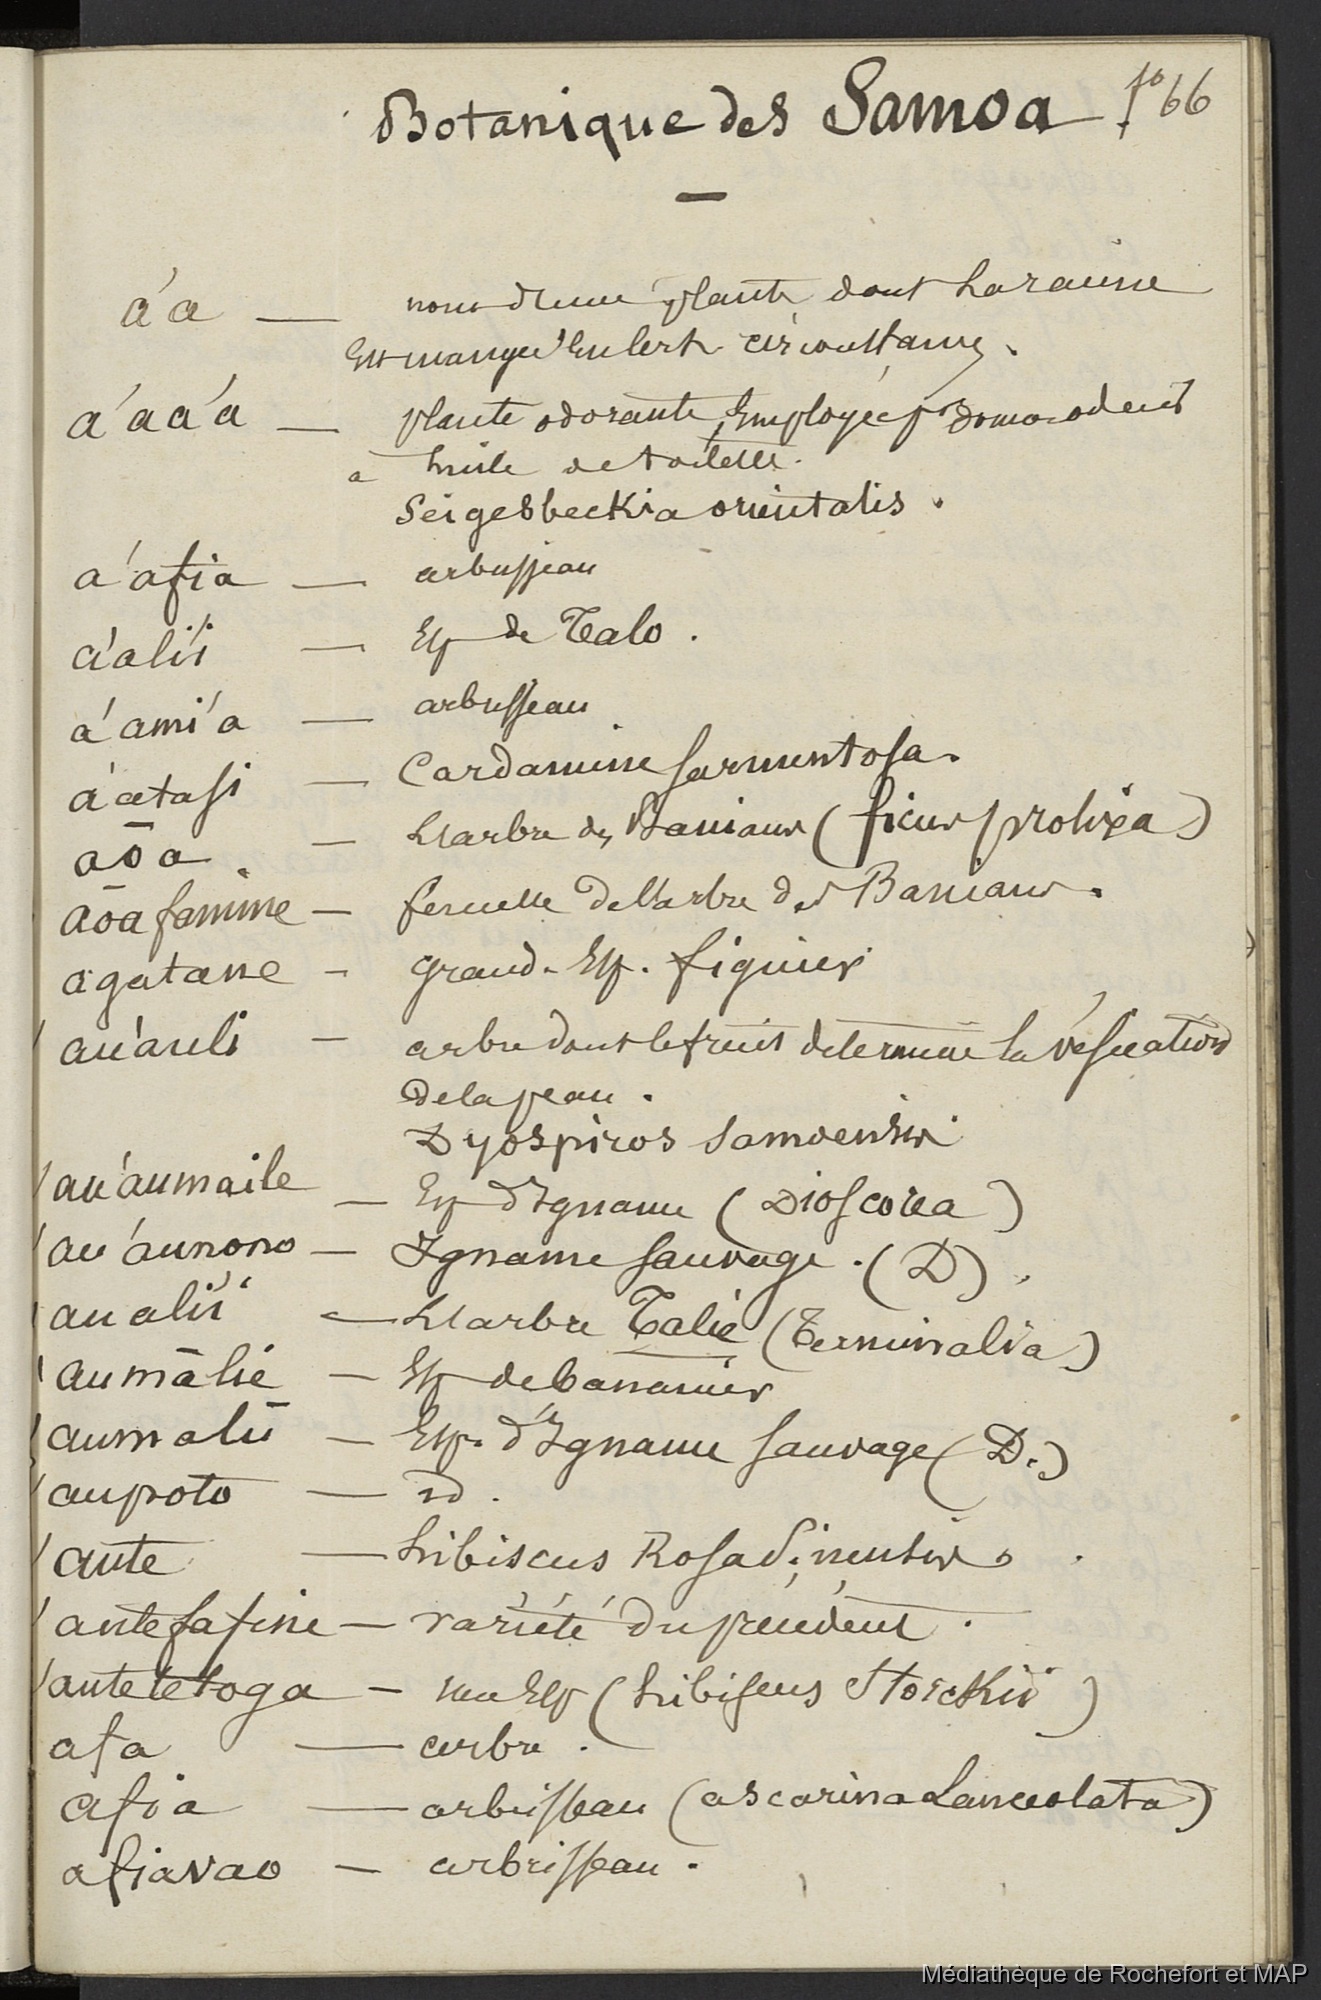 Botanique des Samoa fo 66
a'a — nom d'une plante dont la racine
Est mangée En certe circonstance.
a'aa'a — plante odorante, Employée pr donner odeur
à huile de toilette.
Seigesbeckia orientalis.
a'afia — arbusseau
a'alii — Esp de Talo.
a'ami'a — arbusseau
a'atasi — Cardamine sarmentosa.
aōa — L'arbre des Banians (ficus prolixa)
aōa fanine — femelle de l'arbre des Banians.
agatane — grand. Esp. figuier
au'auli — arbre dont le fruit determine la vésication
de la peau.
Dyospiros Samoensis
au'aumaile — Esp d'Igname (Dioscorea)
au'aunono — Igname sauvage. (D).
aualii — L'arbre Talie (Terminalia)
aumālie — Esp de bananier
aumalii — Esp. d'Igname sauvage (D.)
aupoto — id.
aute — hibiscus Rosa Sinensis.
autefafine — variété du précédent.
autetetoga — une Esp (hibiscus Storckii)
afa — arbre.
afia — arbrisseau (ascarina Lanceolata)
afiavao — arbrisseau.
Médiathèque de Rochefort et MAP